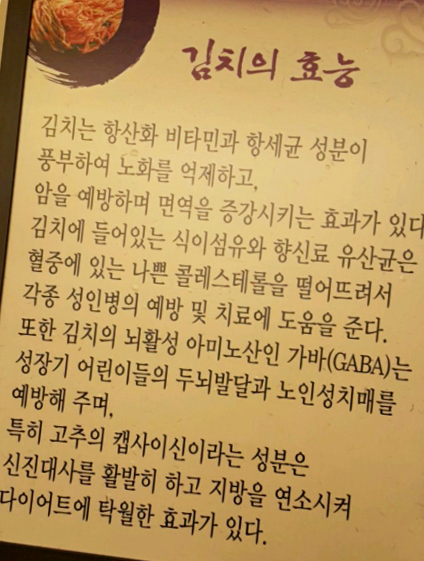 김치의 효능
김치는 항산화 비타민과 항세균 성분이
풍부하여 노화를 억제하고,
암을 예방하며 면역을 증강시키는 효과가 있다
김치에 들어있는 식이섬유와 향신료 유산균은
혈중에 있는 나쁜 콜레스테롤을 떨어뜨려서
각종 성인병의 예방 및 치료에 도움을 준다.
또한 김치의 뇌활성 아미노산인 가바(GABA)는
성장기 어린이들의 두뇌발달과 노인성치매를
예방해 주며,
특히 고추의 캡사이신이라는 성분은
신진대사를 활발히 하고 지방을 연소시켜
다이어트에 탁월한 효과가 있다.